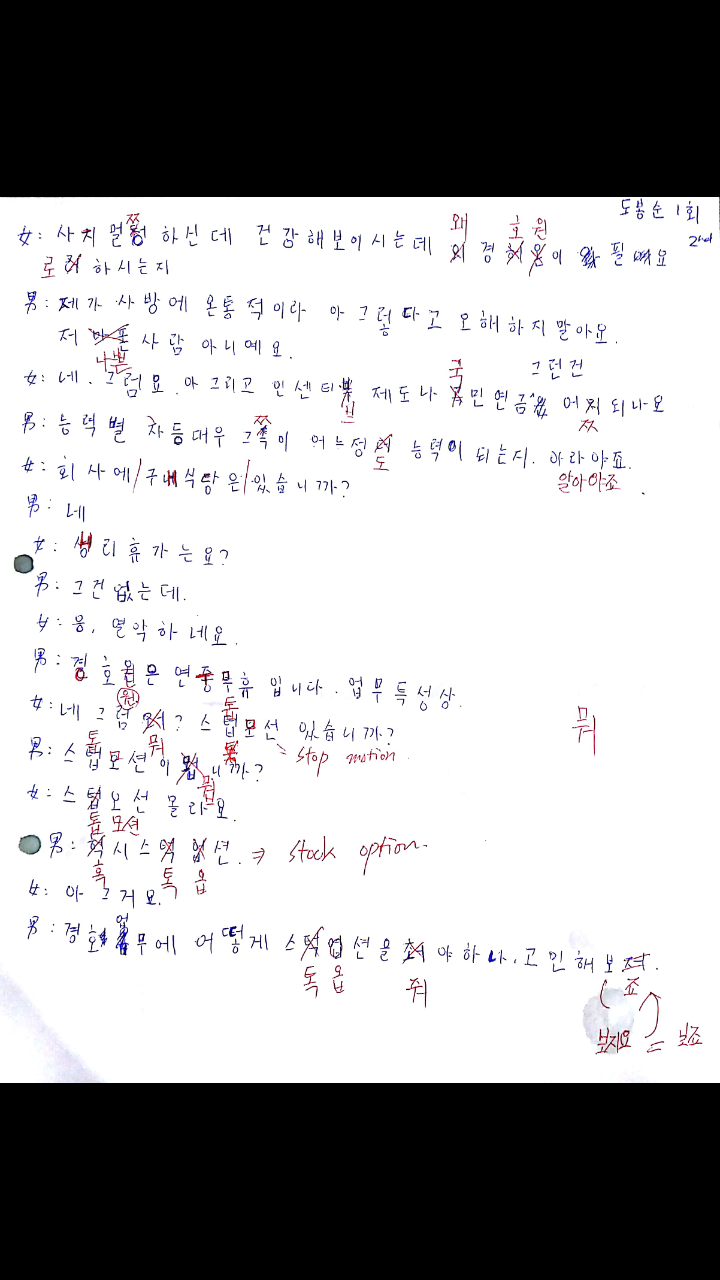 도봉순 1회
2nd
쩡 왜 호원
女: 사지 멀 하신데 건강해보이시는데 경 이 필요
로 하시는지
男: 제가 사방에 온통 적이라 아 그렇다고 오해하지말아요.
저 사람 아니예요.
나쁜
국 그런건
女: 네. 그럼요. 아 그리고 인센티 제도나 민연금 어찌 되나요
브 쯔
男: 능력별 차등대우 그쪽이 어느정 능력이 되는지. 아라야죠.
도 알아야죠
女: 회사에/구내식당은/있습니까?
男: 네
女: 생리휴가는요?
男: 그건 없는데.
女: 응, 열악하네요.
男: 경호원은 연중무휴 입니다. 업무특성상.
원 톱
女: 네 그럼 ? 스텁모션 있습니까?
톱 뭐 뭐
男: 스텁모션이 니까? = stop motion.
뭡
女: 스텁오션 몰라요.
톱 모션
男: 혁시 스턱 업션. ⇒ stock option.
혹 톡 옵
女: 아 그거요.
업
男: 경호 무에 어떻게 스턱업션을 야하나, 고민해보져.
톡 옵 줘 죠
보지요 = 보죠